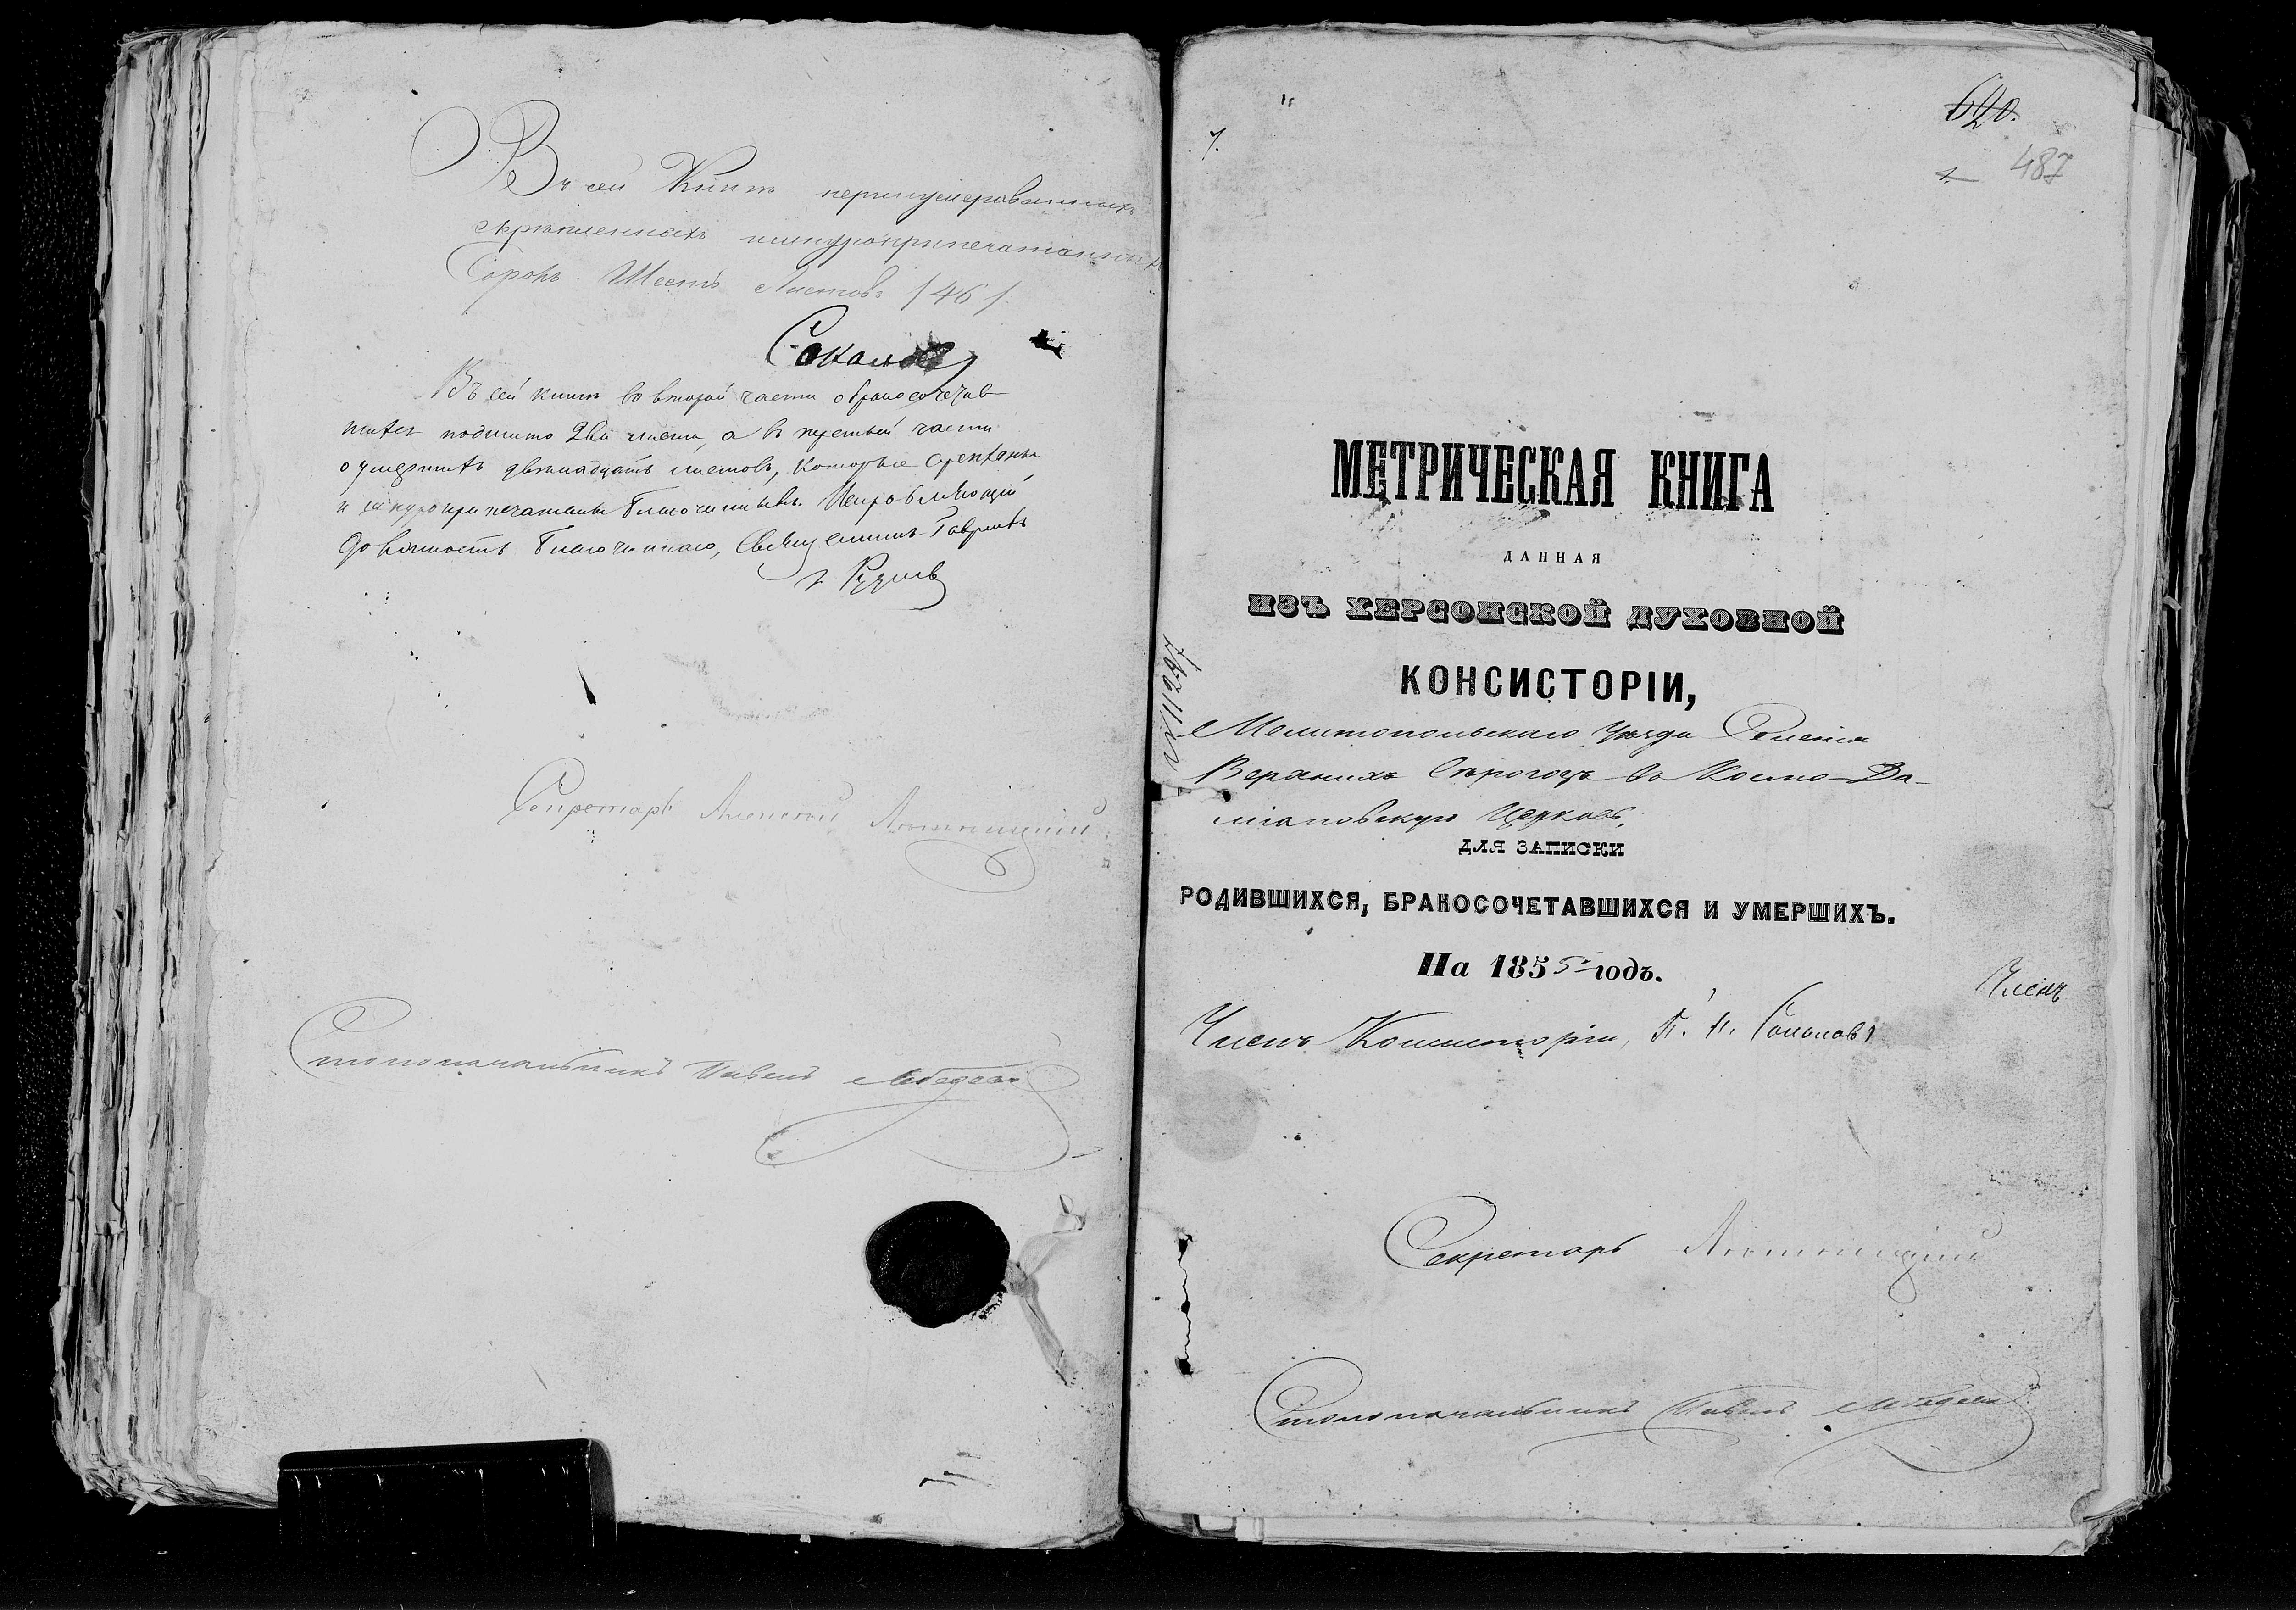 Въ сей Книгѣ перенумерованныхъ
скрѣпленныхъ шнуроприпечатанныхъ
Сорокъ Шесть Листовъ /46/.
Соколовъ
Въ сей книгѣ во второй части о бракосочетав
шихся подшито два листа, а въ третьей части
о умершихъ двенадцать листовъ, которые скреплены
и шнуроприпечатаны Благочиннымъ. Исправляющій
должность Благочиннаго, Священникъ Гавриилъ
Секретарь Алексей
Столоначальникъ Павелъ Лебедевъ
620.
487
1.
№ 11297
МЕТРИЧЕСКАЯ КНИГА
ДАННАЯ
ИЗЪ ХЕРСОНСКОЙ ДУХОВНОЙ
КОНСИСТОРІИ,
Мелитопольскаго Уѣзда Селенія
Верхнихъ Сѣрогозъ въ Космо-Да-
міановскую Церковь,
ДЛЯ ЗАПИСКИ
РОДИВШИХСЯ, БРАКОСОЧЕТАВШИХСЯ И УМЕРШИХЪ.
На 1855 годъ.
Членъ
Членъ Консисторіи, П. Соколовъ
Секретарь
Столоначальникъ Павелъ Лебедевъ